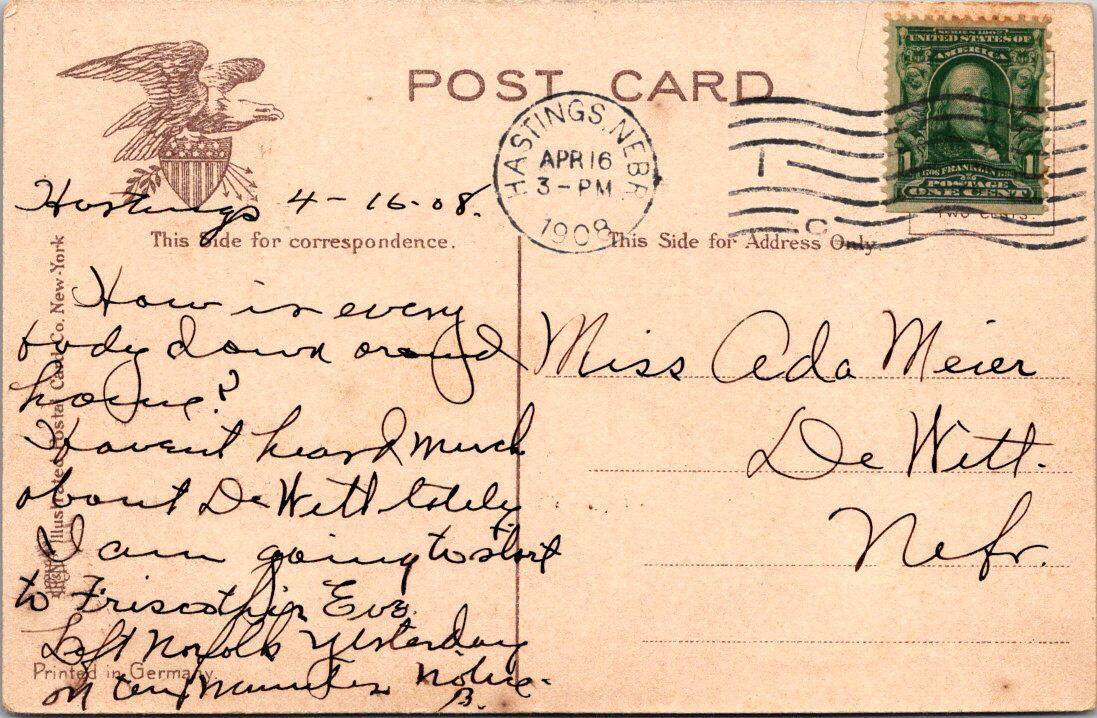 POST CARD
HASTINGS, NEBR.
APR 16
3-PM
1908
SERIES 1902
UNITED STATES OF
AMERICA
1 1
FRANKLIN
POSTAGE
ONE CENT
TWO CENTS.
Hastings 4-16-08.
This Side for correspondence.
How is every
body down around
home?
Havent heard much
about De Witt lately
I am going to start
to Frisco this Eve.
Left Norfolk Yesterday
on ten Minutes Notice.
B.
This Side for Address Only.
Miss Ada Meier
De Witt.
Nebr.
Illustrated Postal Card Co. New-York
Printed in Germany.